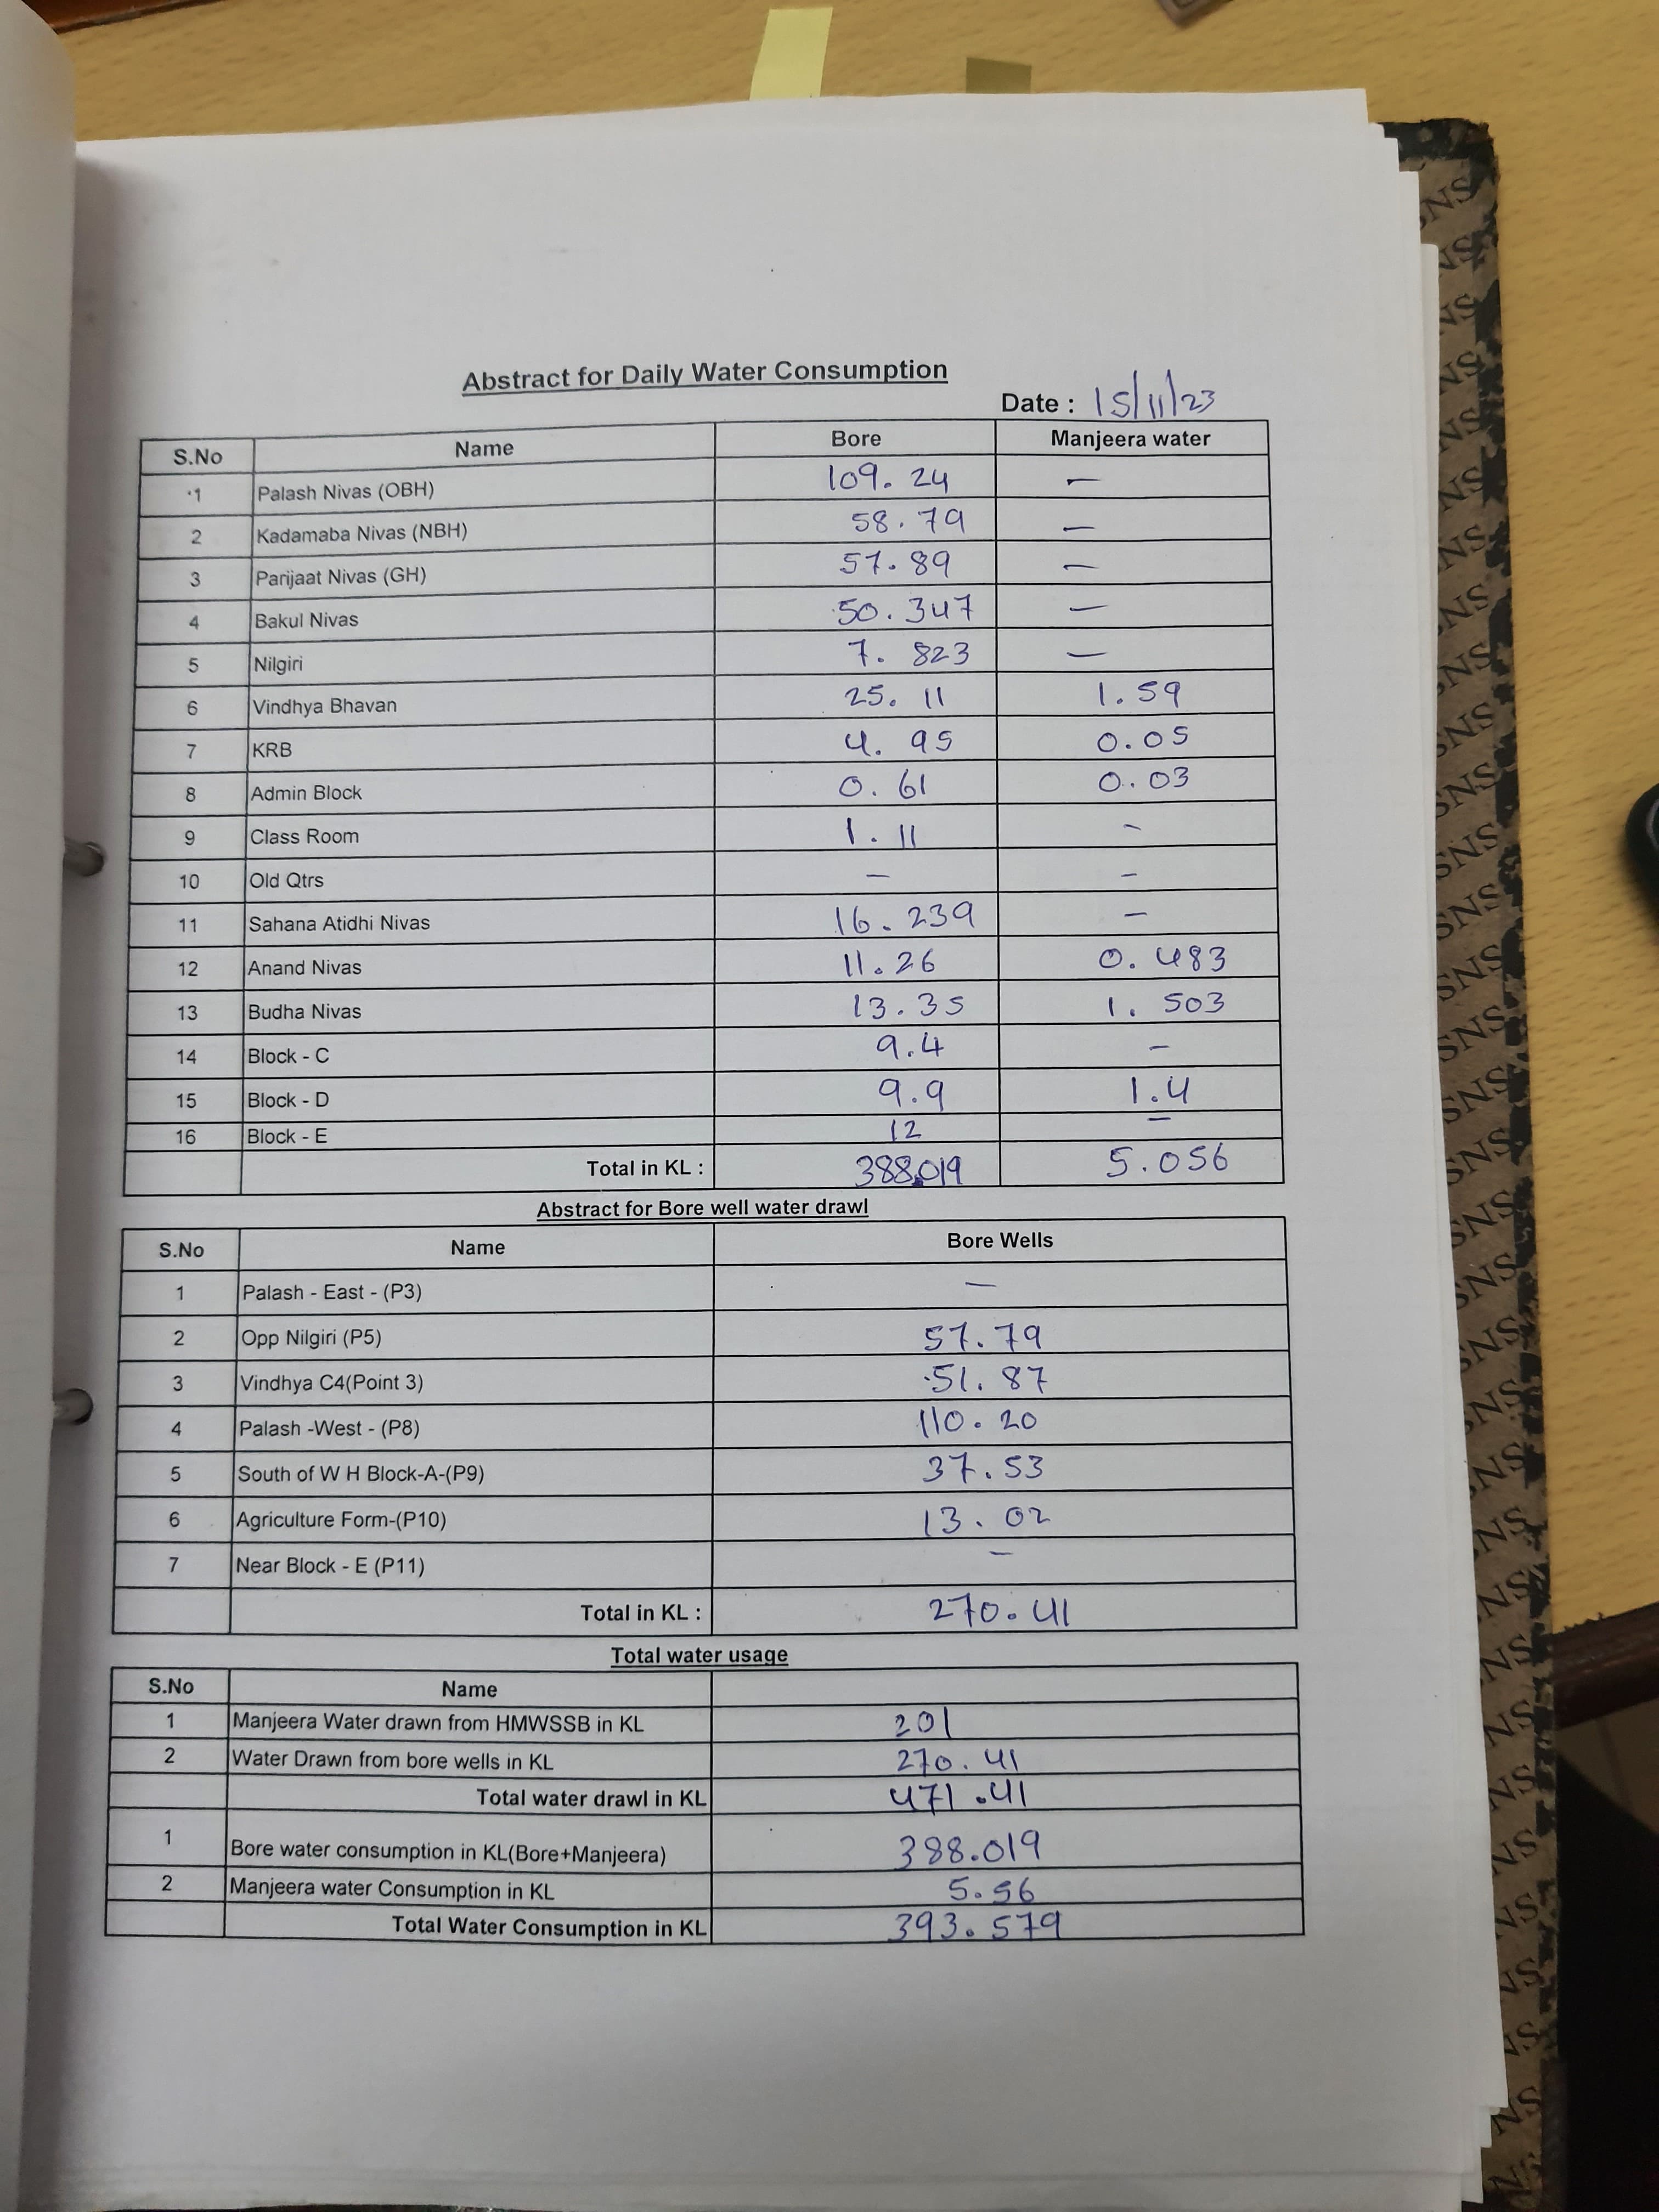 Abstract for Daily Water Consumption
Date : 15/11/23
S.No Name Bore Manjeera water
1 Palash Nivas (OBH) 109.24 —
2 Kadamaba Nivas (NBH) 58.79 —
3 Parijaat Nivas (GH) 57.89 —
4 Bakul Nivas 50.347 —
5 Nilgiri 7.823 —
6 Vindhya Bhavan 25.11 1.59
7 KRB 4.95 0.05
8 Admin Block 0.61 0.03
9 Class Room 1.11 -
10 Old Qtrs — -
11 Sahana Atidhi Nivas 16.239 —
12 Anand Nivas 11.26 0.483
13 Budha Nivas 13.35 1.503
14 Block - C 9.4 -
15 Block - D 9.9 1.4
16 Block - E 12 —
Total in KL : 388.019 5.056
Abstract for Bore well water drawl
S.No Name Bore Wells
1 Palash - East - (P3) —
2 Opp Nilgiri (P5) 57.79
3 Vindhya C4(Point 3) 51.87
4 Palash -West - (P8) 110.20
5 South of W H Block-A-(P9) 37.53
6 Agriculture Form-(P10) 13.02
7 Near Block - E (P11) —
Total in KL : 270.41
Total water usage
S.No Name
1 Manjeera Water drawn from HMWSSB in KL 201
2 Water Drawn from bore wells in KL 270.41
Total water drawl in KL 471.41
1 Bore water consumption in KL(Bore+Manjeera) 388.019
2 Manjeera water Consumption in KL 5.56
Total Water Consumption in KL 393.579